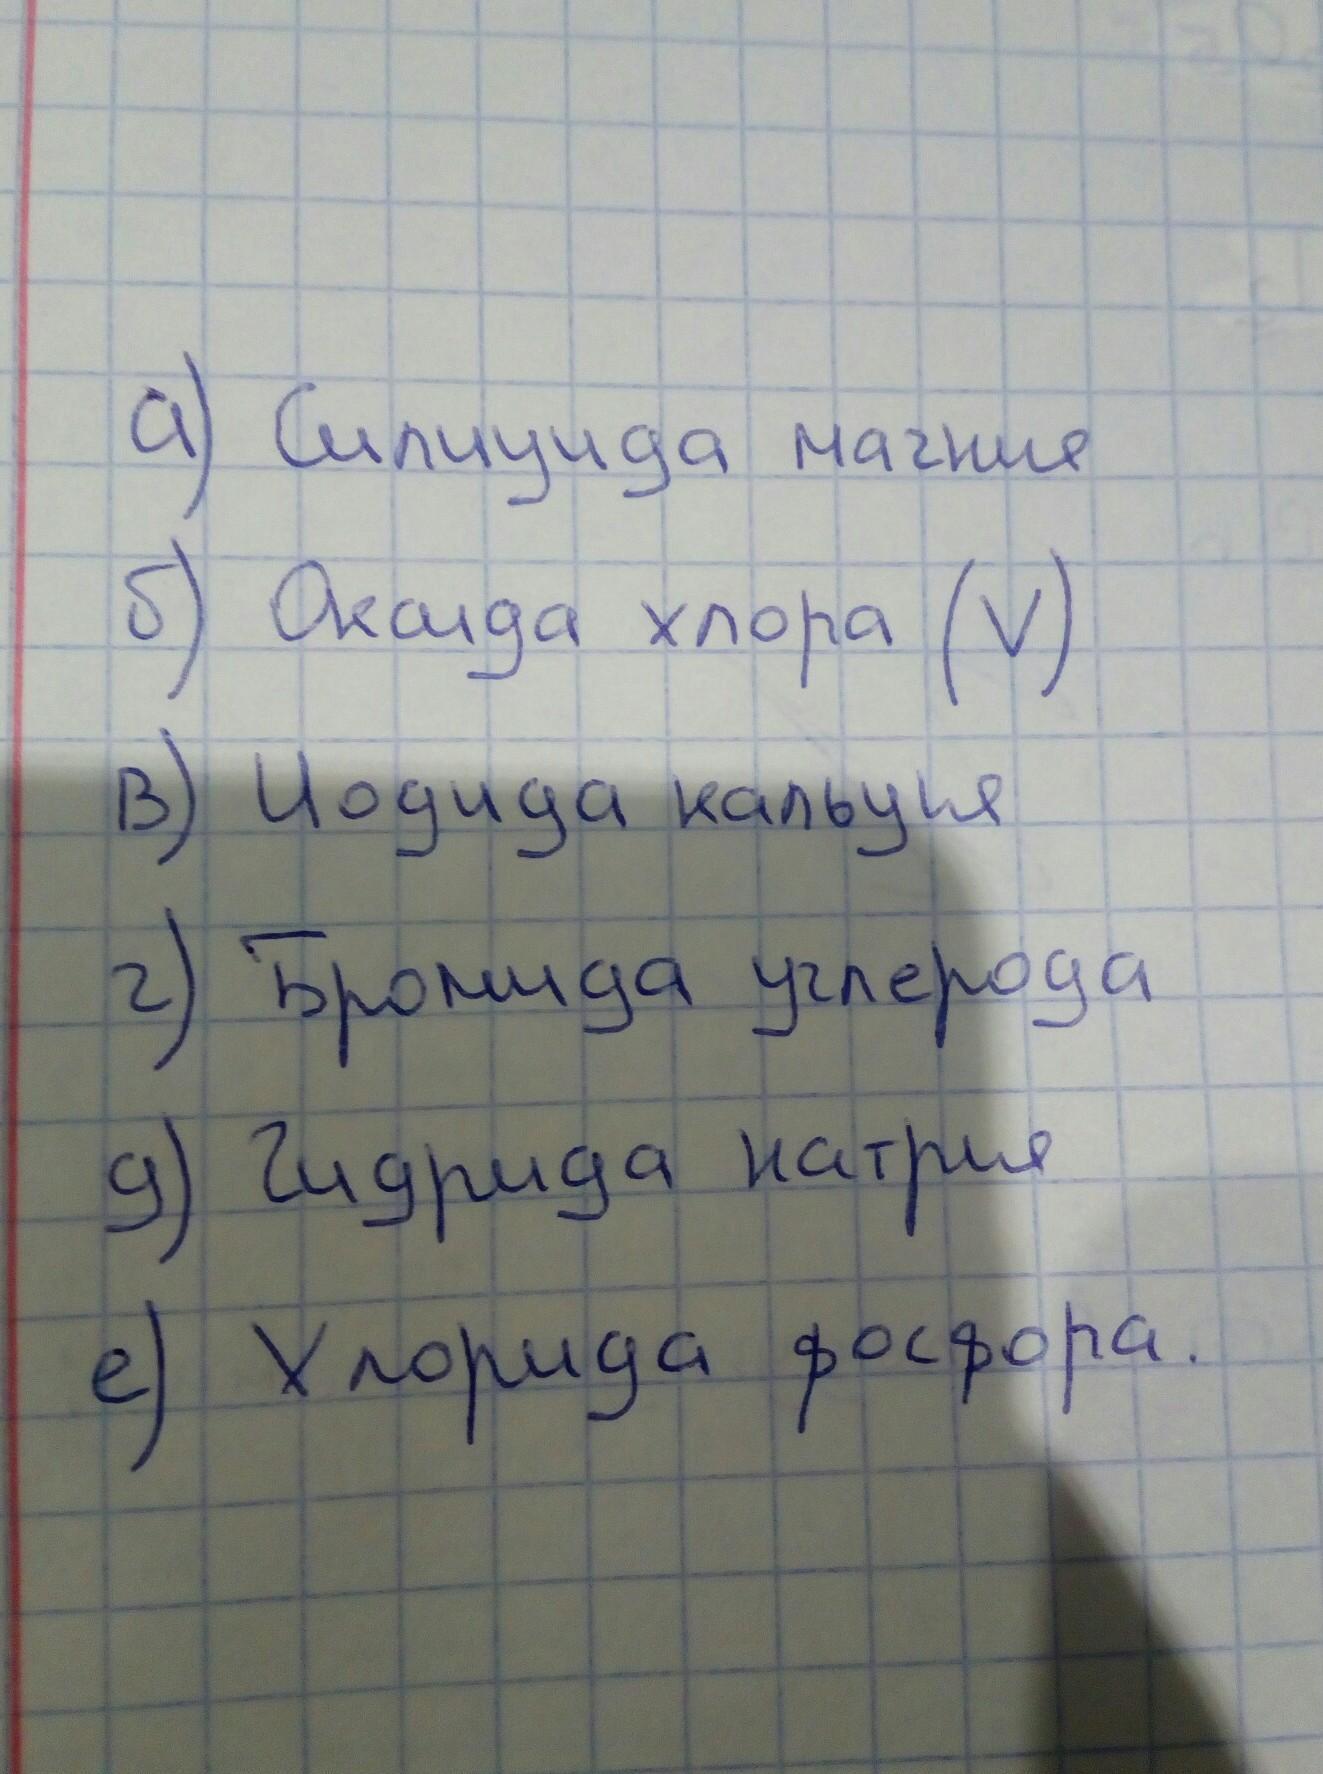 а) Силицида магния
б) Оксида хлора (V)
в) Иодида кальция
г) Бромида углерода
д) Гидрида натрия
е) Хлорида фосфора.